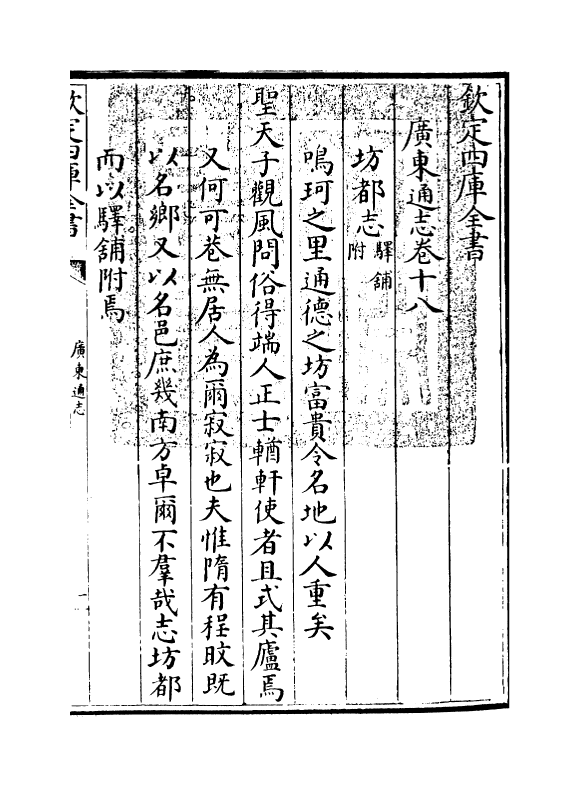 欽定四庫全書
廣東通志卷十八
坊都志驛鋪附
鳴珂之里通德之坊富貴令名地以人重矣
聖天子觀風問俗得端人正士輶軒使者且式其廬焉
又何可巷無居人為爾寂寂也夫惟隋有程旼既
以名鄉又以名邑庶幾南方卓爾不羣哉志坊都
而以驛鋪附焉
欽定四庫全書
廣東通志
一